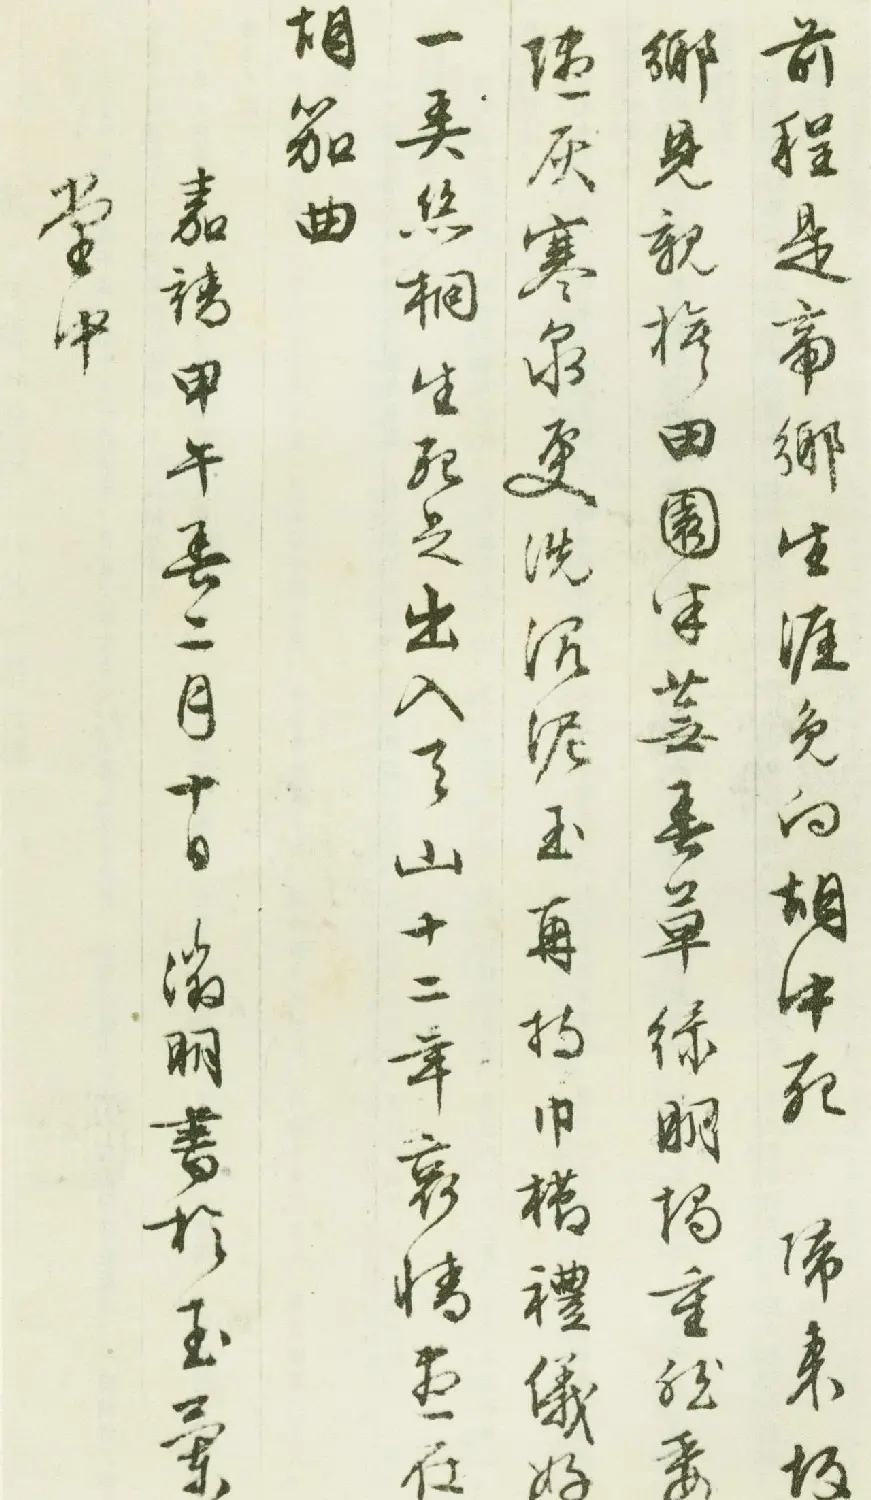 前程是帝鄉生涯免向胡中死 歸來故
鄉見親族田園半蕪春草綠明燭重然委
燼灰寒泉更洗沉泥玉再持巾櫛禮儀好
一弄絲桐生死足出入天山十二年哀情盡在
胡笳曲
嘉靖甲午春二月十日 徵明書於玉蘭
堂中